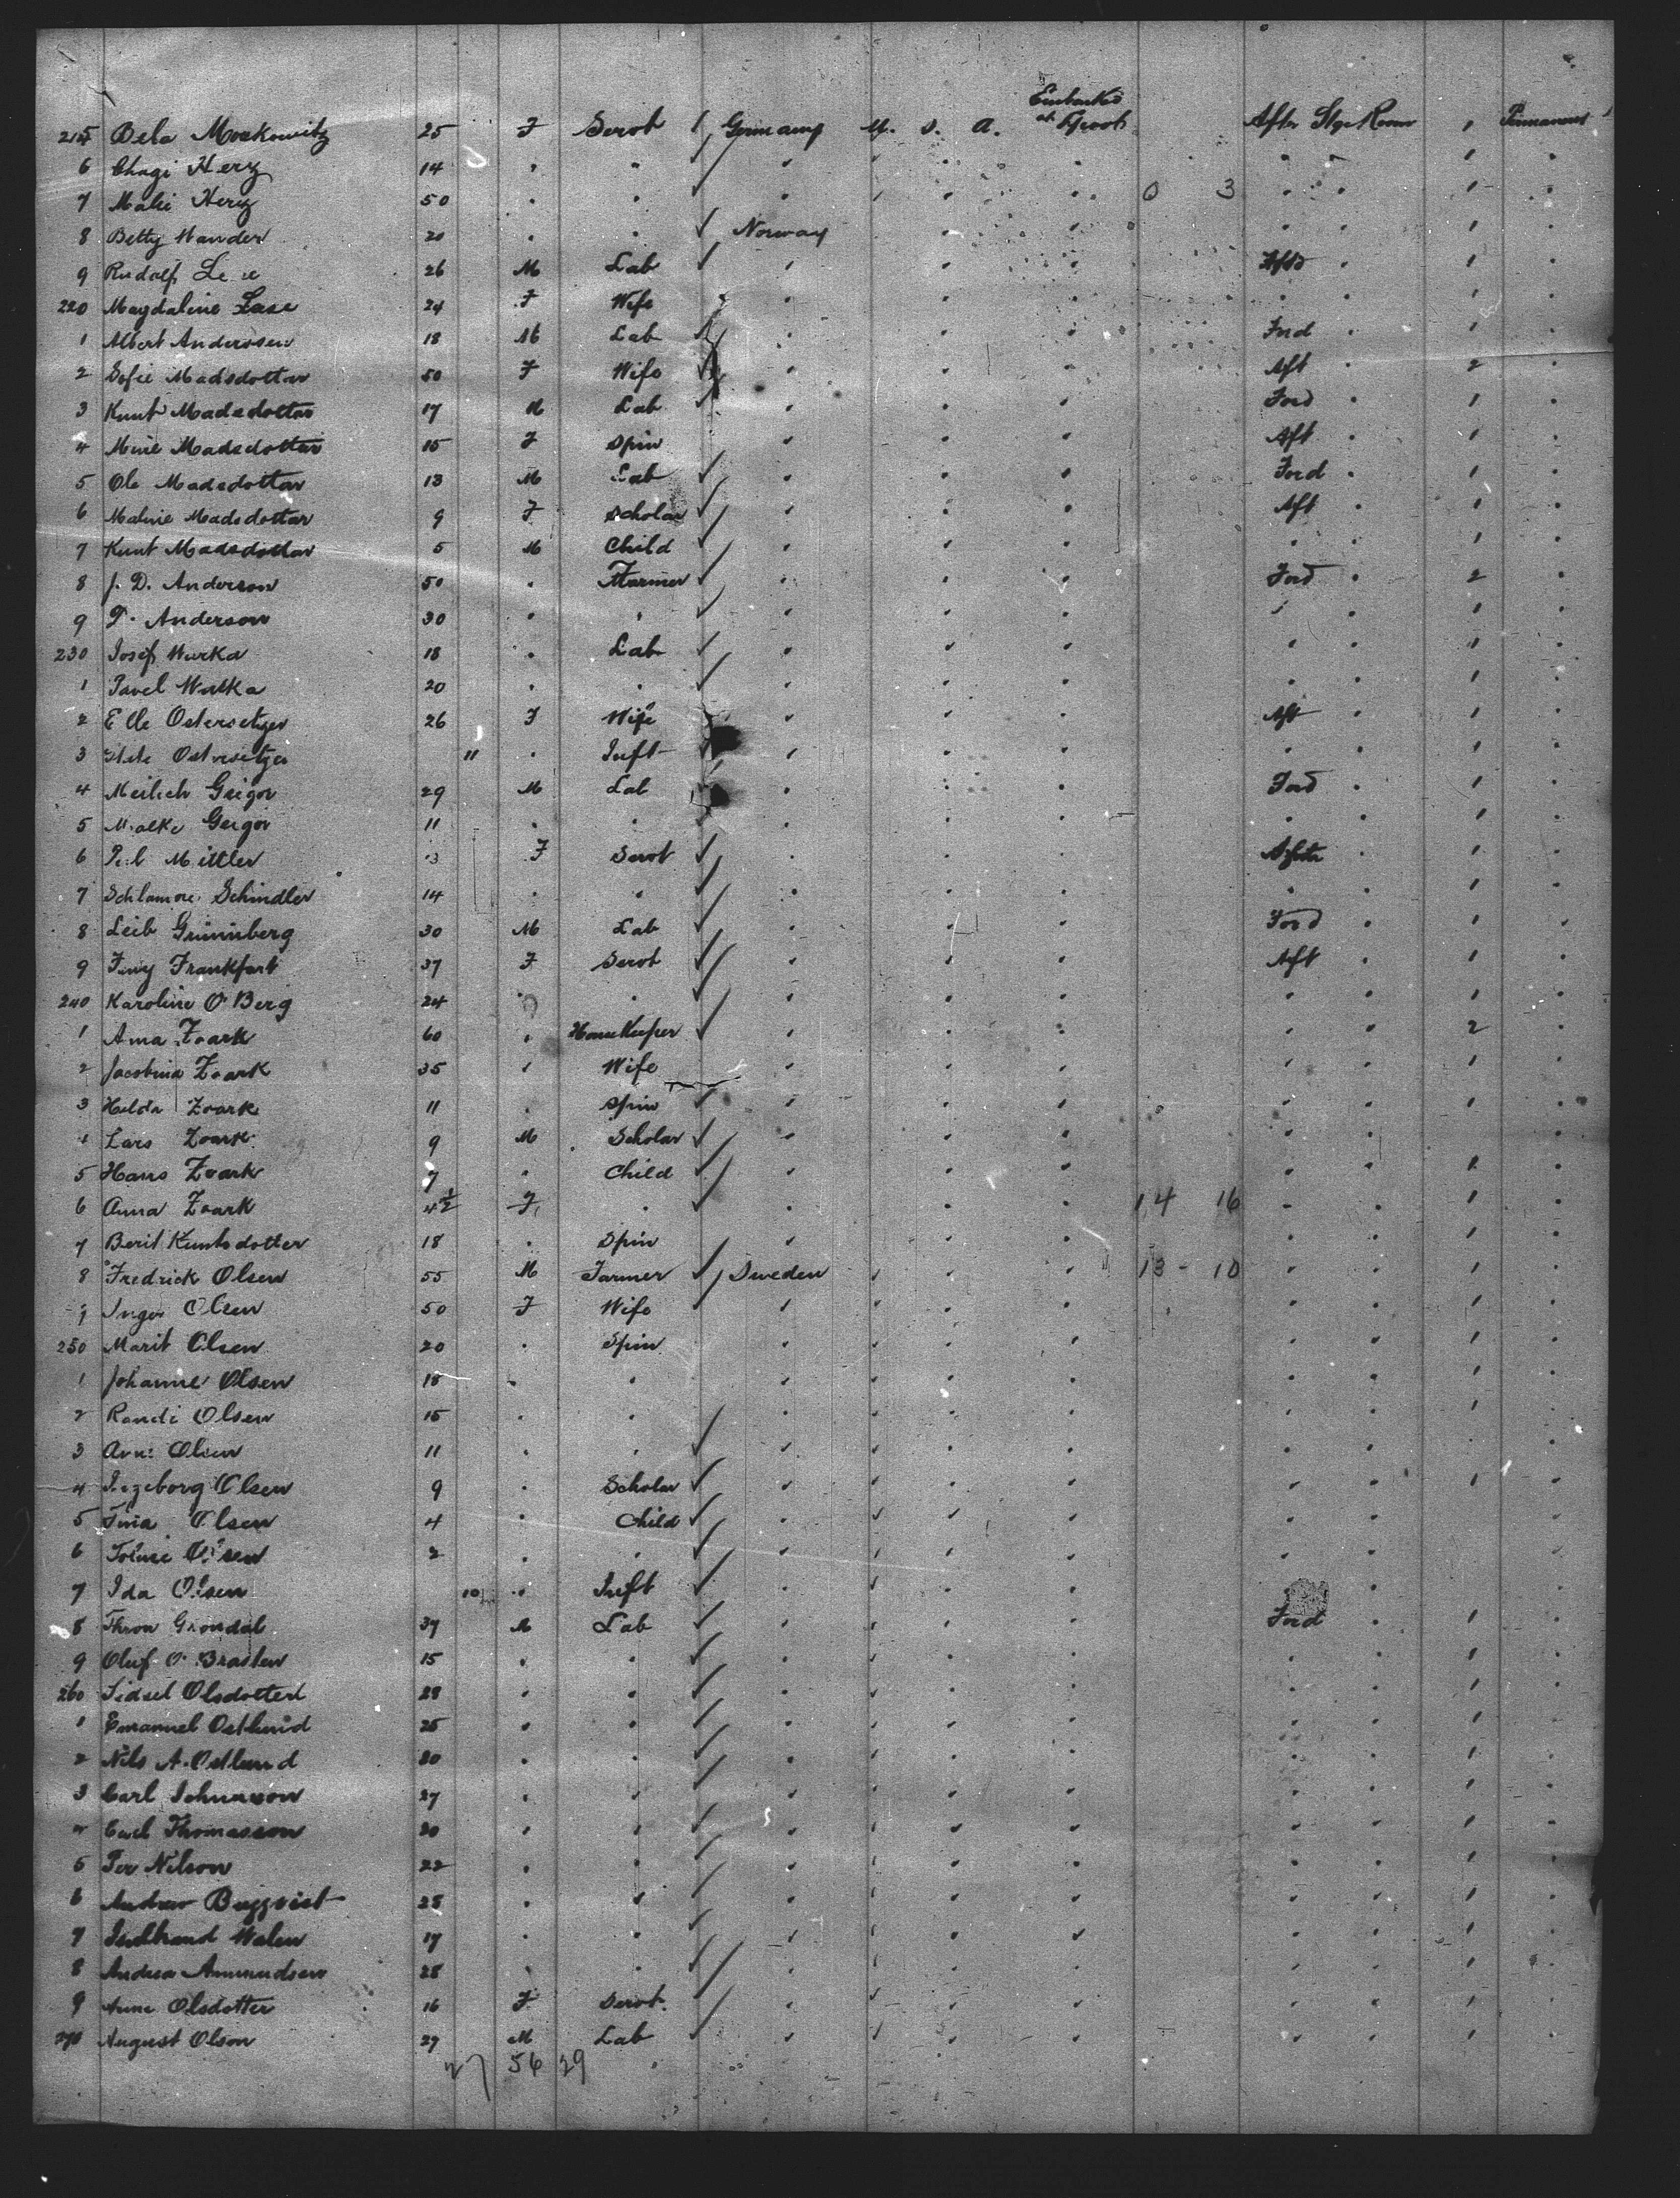 Embarked
215 Bela Moskowitz 25 F Servt Germany U. S. A. at L'pool After Stge Room 1 Permanent
6 Chagi Herz 14 " " " " " " " " 1 "
7 Malie Herz 50 " " " " " " 0 3 " " 1 "
8 Betty Wander 20 " " Norway " " " " 1 "
9 Rudolf 26 M Lab " " " " 1 "
220 Magdaline Lase 24 F Wife " " " " " 1 "
1 Albert Anderssen 18 M Lab " " " Ford " 1 "
2 Sofie Madsdottar 50 F Wife " " " Aft " 2 "
3 Knut Madsdottar 17 M Lab " " " Ford " 1 "
4 Madsdottar 15 F Spin " " " Aft " 1 "
5 Ole Madsdottar 13 M Lab " " " Ford " 1 "
6 Maline Madsdottar 9 F Scholar " " " Aft " 1 "
7 Knut Madsdottar 5 M Child " " " " " 1 "
8 J. D. Anderson 50 " Farmer " " " Ford " 2 "
9 P. Anderson 30 " " " " " " " 1 "
230 Josef Wurka 18 " Lab " " " " " 1 "
1 Pavel Wurka 20 " " " " " " " 1 "
2 Ostersetzer 26 F Wife " " " Aft " 1 "
3 Ostersetzer 11 " Inft " " " " " 1 "
4 Meilich Geigor 29 M Lab " " " Ford " 1 "
5 Malke Geigor 11 " " " " " " " 1 "
6 Mittler 13 F Servt " " " After " 1 "
7 Schindler 14 " " " " " " " 1 "
8 Leib Grünnberg 30 M Lab " " " Ford " 1 "
9 Frankfurt 37 F Servt " " " Aft " 1 "
240 Karoline O Berg 24 " " " " " " " 1 "
1 Ama Zvark 60 " HouseKeeper " " " " " 2 "
2 Jacobina Zvark 35 " Wife " " " " " 1 "
3 Hilda Zvark 11 " Spin " " " " " 1 "
4 Lars Zvark 9 M Scholar " " " " " "
5 Hans Zvark 7 " Child " " " " " 1 "
6 Anna Zvark 4½ F " " " " 14 16 " " 1 "
7 Berit Kuntsdotter 18 " Spin " " " " " 1 "
8 Fredrick Olsen 55 M Farmer Sweden " " " 13 - 10 " " 1 "
9 Inger Olsen 50 F Wife " " " " " " 1 "
250 Marit Olsen 20 " Spin " " " " " " 1 "
1 Johanne Olsen 18 " " " " " " " " 1 "
2 Randi Olsen 15 " " " " " " " " 1 "
3 Olsen 11 " " " " " " " " "
4 Ingeborg Olsen 9 " Scholar " " " " " " 1 "
5 Tina Olsen 4 " Child " " " " " " "
6 Olsen 2 " " " " " " " " "
7 Ida Olsen 10 " Inft " " " " " "
8 Thron Grondal 37 M Lab " " " " Ford " 1 "
9 Oluf O. Brasten 15 " " " " " " " " 1 "
260 Sidsel Olsdotter 28 " " " " " " " " 1 "
1 Emanuel Ostlund 25 " " " " " " " " 1 "
2 Nils A. Ostlund 20 " " " " " " " " 1 "
3 Carl Johnasson 27 " " " " " " " " 1 "
4 Carl Thomasson 20 " " " " " " " " 1 "
5 Per Nilson 22 " " " " " " " " 1 "
6 Andrew Bergqvist 28 " " " " " " " " 1 "
7 Walen 17 " " " " " " " " 1 "
8 Andrea Ammundsen 28 " " " " " " " " 1 "
9 Anne Olsdotter 16 F Servt " " " " " " 1 "
270 August Olson 27 M Lab " " " " " " 1 "
27 56 29